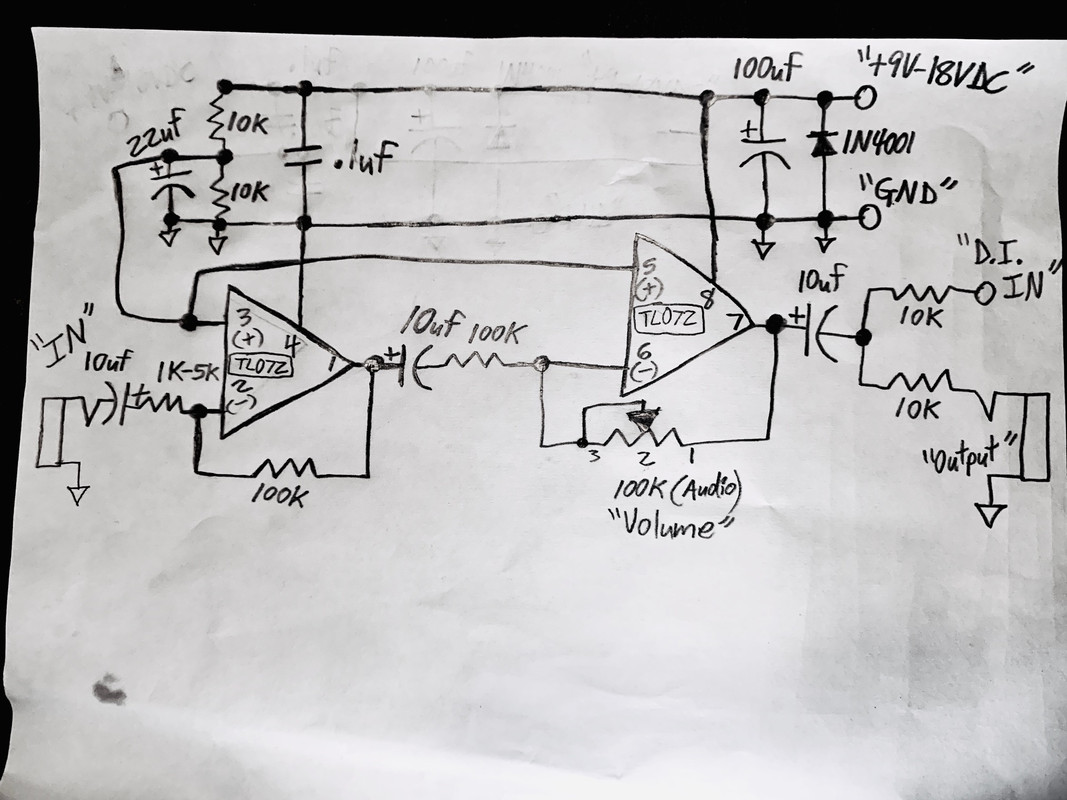 100uf
"+9V-18VDC"
22uf
10K
+
10K
.1uf
+
1N4001
"GND"
"IN"
10uf
+
1K-5K
3
(+)
4
TL072
1
2
(-)
100K
10uf
+
100K
5
(+)
8
TL072
7
6
(-)
3
2
1
100K (Audio)
"Volume"
10uf
+
"D.I.
IN"
10K
10K
"Output"